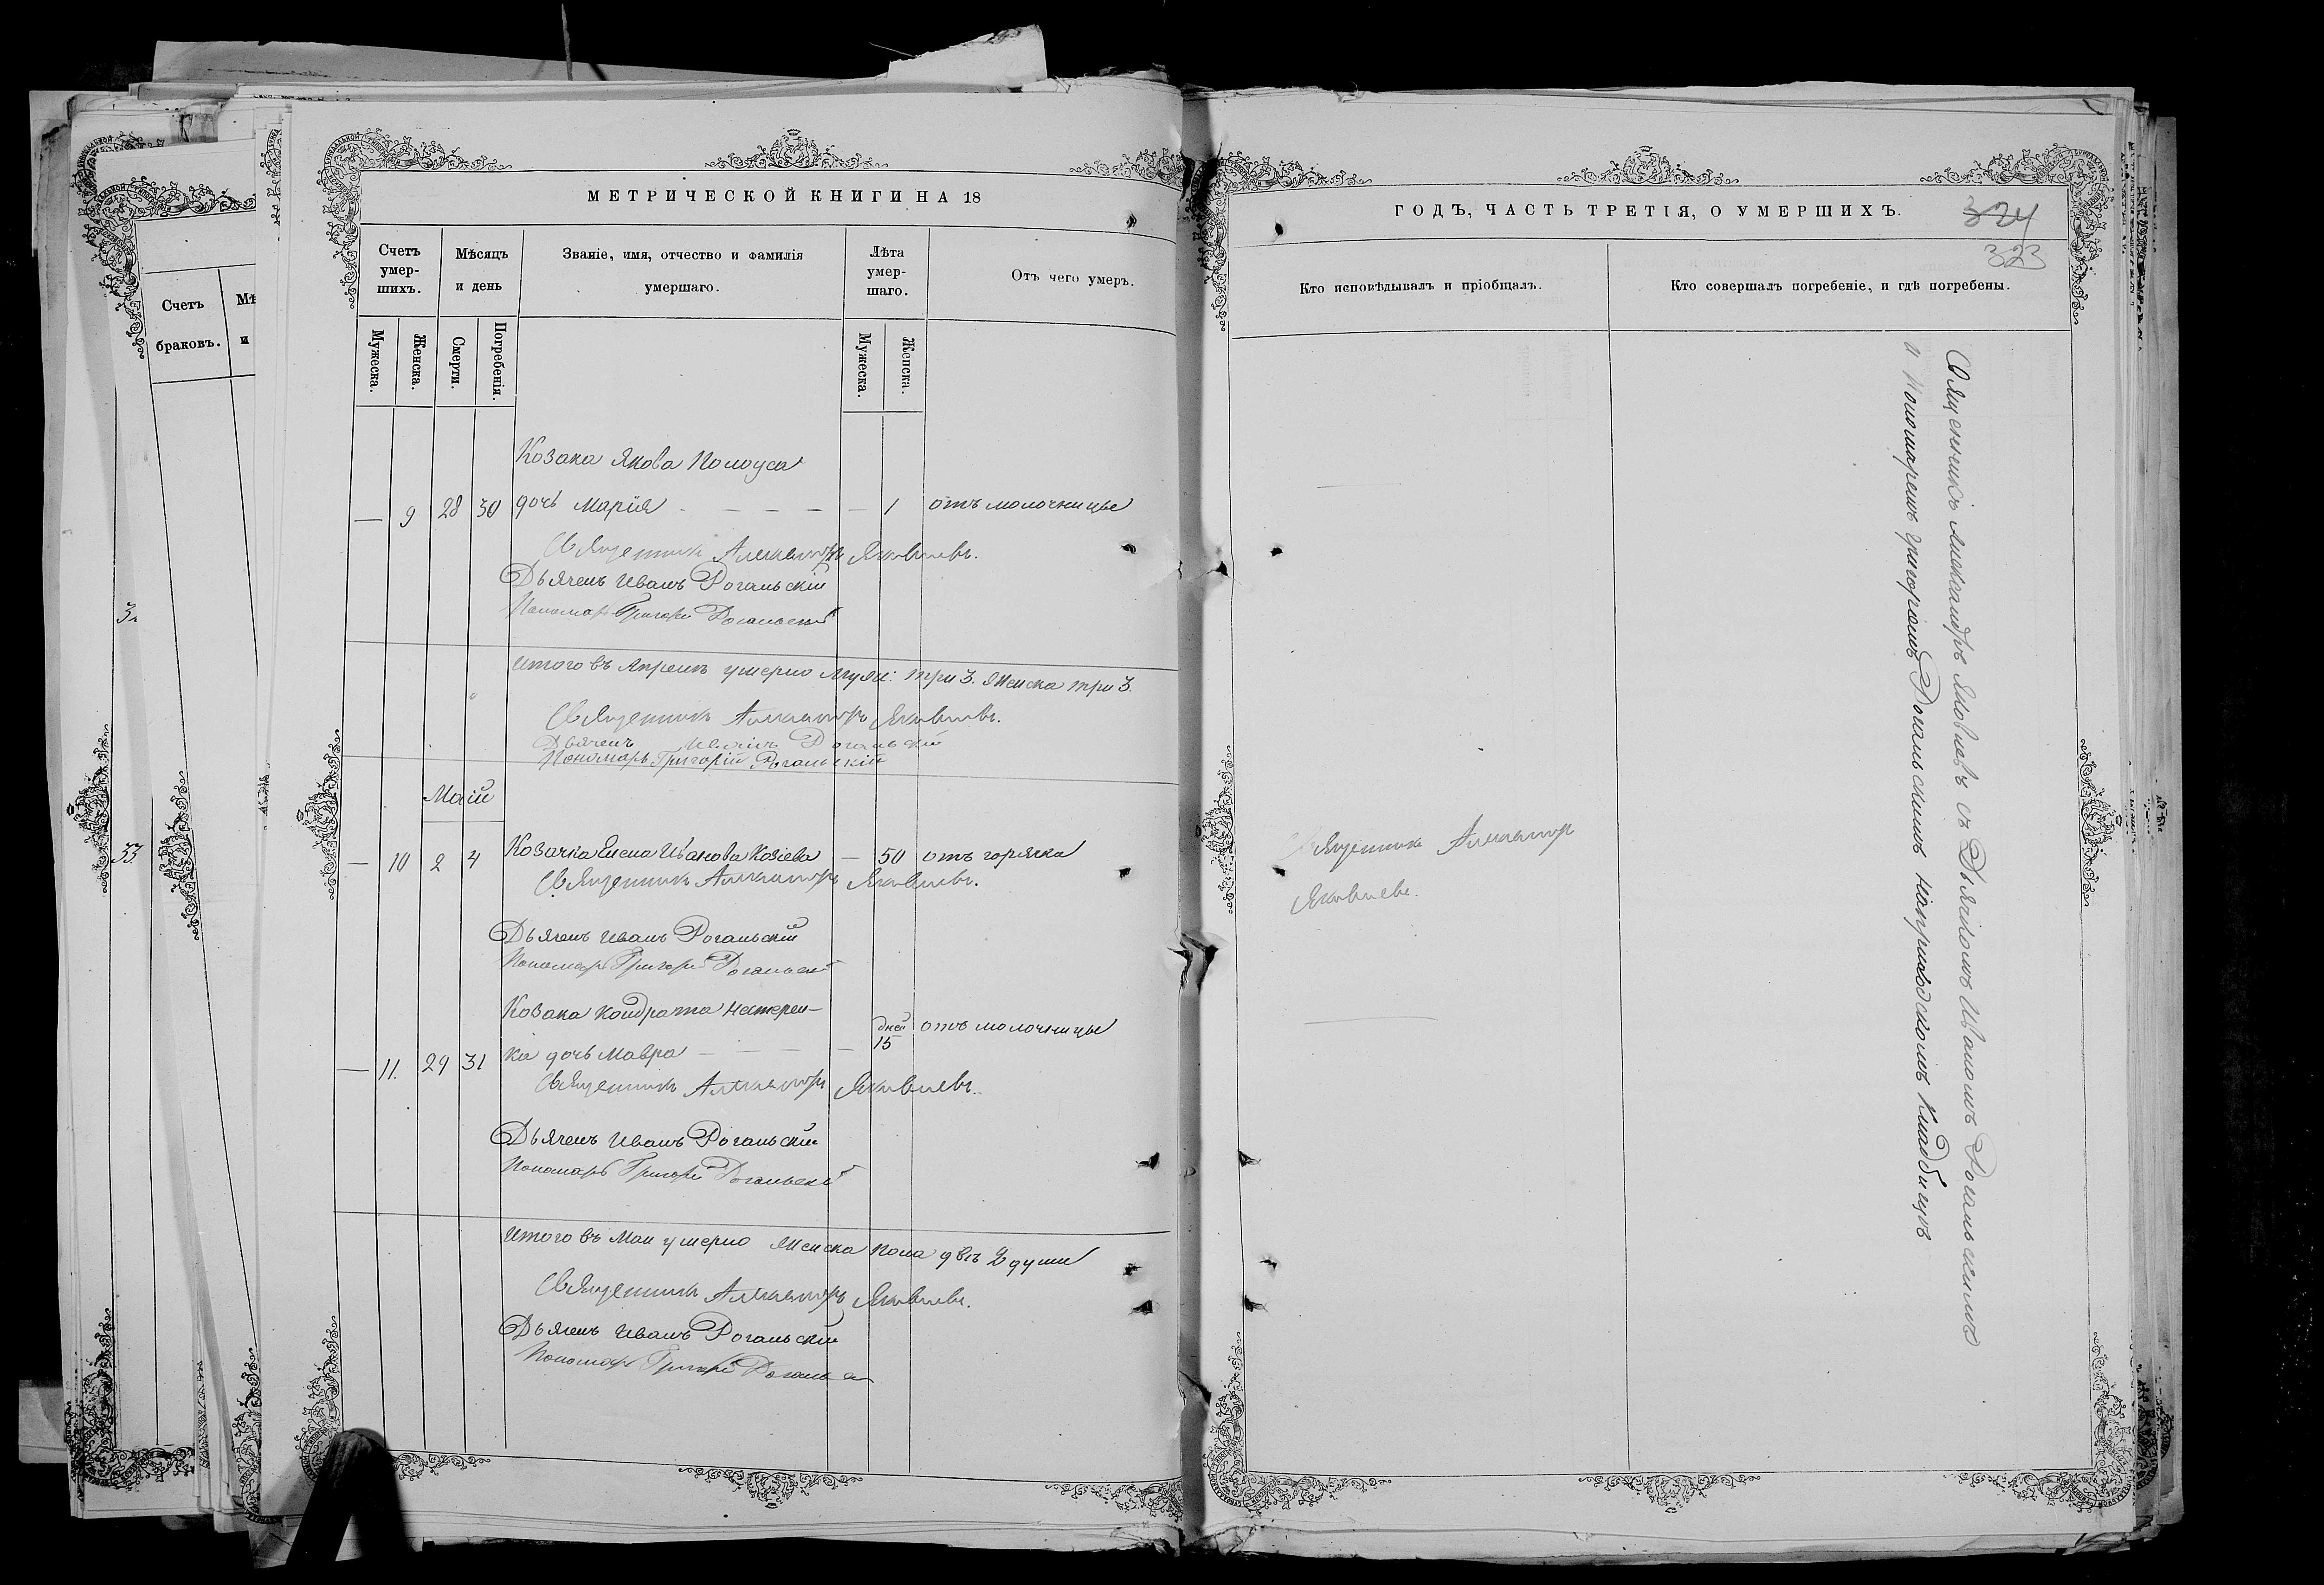 МЕТРИЧЕСКОЙ КНИГИ НА 18
Счетъ умер-шихъ.
Мѣсяцъ и день
Званіе, имя, отчество и фамилія умершаго.
Лѣта умер-шаго.
Отъ чего умеръ.
Мужеска.
Женска.
Смерти.
Погребенія.
Мужеска.
Женска.
Козака Якова Колоуса
— 9 28 30 дочь Марія — — — — 1 отъ молочницы
Священникъ Александръ Яковлевъ.
Дьячекъ Иванъ Рогальскій
Пономарь Григорій Рогальскій
Итого въ Апрелѣ умерло Муж: три 3. Женска три 3.
Священникъ Александръ Яковлевъ.
Дьячекъ Иванъ Рогальскій
Пономарь Григорій Рогальскій
Маій
— 10 2 4 Козачка Елена Иванова — 50 отъ горячки
Священникъ Александръ Яковлевъ.
Дьячекъ Иванъ Рогальскій
Пономарь Григорій Рогальскій
Козака Кондрата Нестерен-
— 11. 29 31 ка дочь Мавра — — — — дней 15 отъ молочницы
Священникъ Александръ Яковлевъ.
Дьячекъ Иванъ Рогальскій
Пономарь Григорій Рогальскій
Итого въ Маи умерло Женска пола двѣ 2 души
Священникъ Александръ Яковлевъ.
Дьячекъ Иванъ Рогальскій
Пономарь Григорій
ГОДЪ, ЧАСТЬ ТРЕТІЯ, О УМЕРШИХЪ.
324
323
Кто исповѣдывалъ и пріобщалъ.
Кто совершалъ погребеніе, и гдѣ погребены.
Священникъ Александръ
Яковлевъ.
Священникъ Александръ Яковлевъ съ Дьячкомъ Иваномъ Рогальскимъ
и Пономаремъ Григоріемъ Рогальскимъ на приходскомъ кладбищѣ
Счетъ
браковъ.
Мѣ
и
32
33